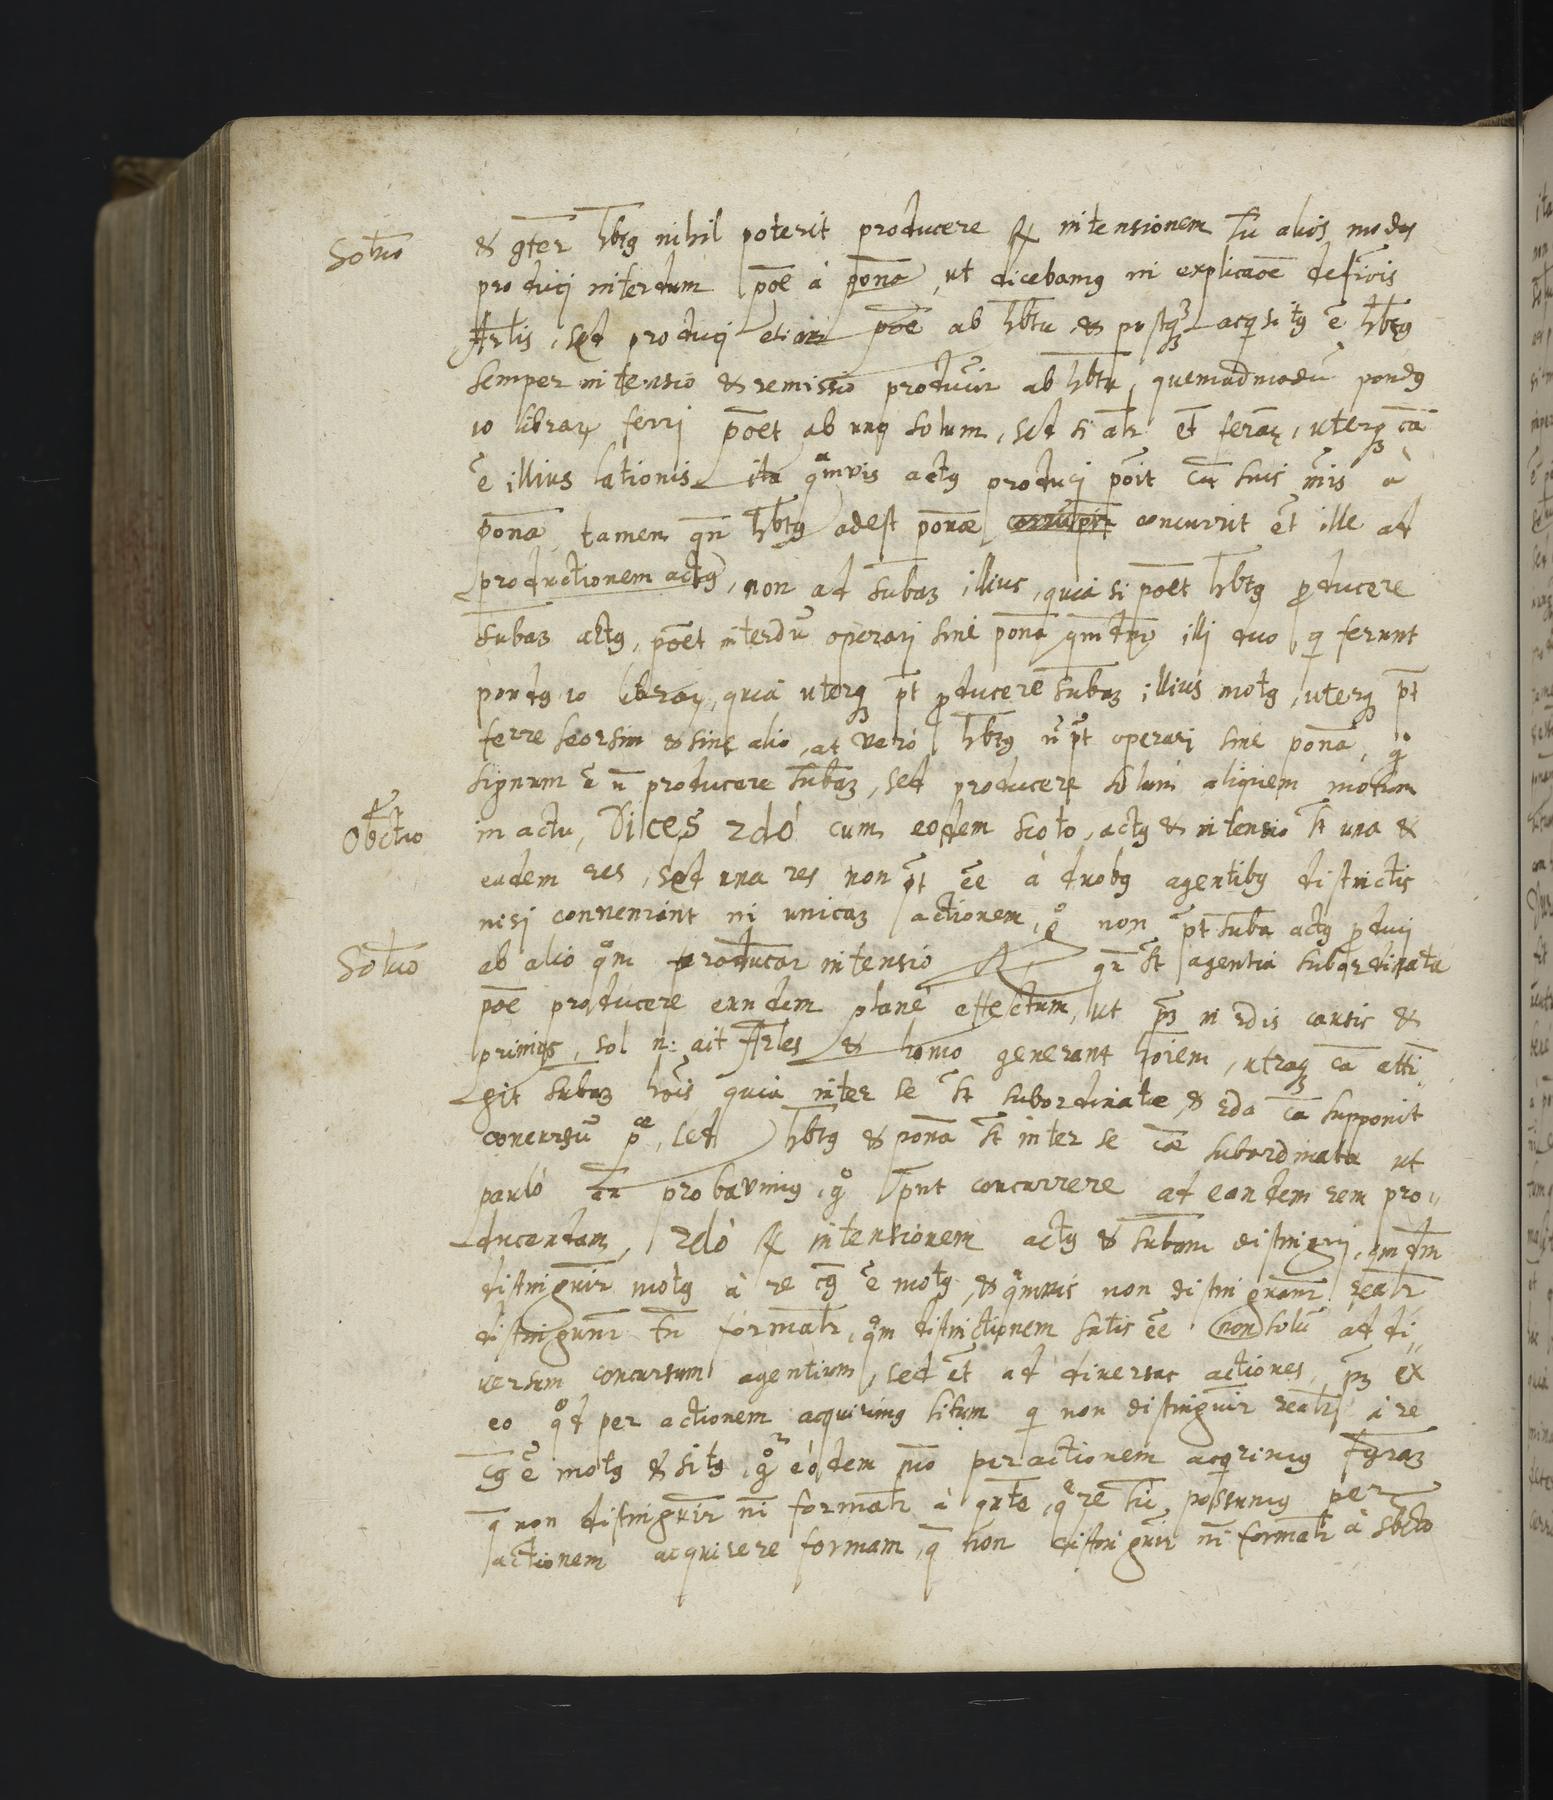 Solutio
& gter hbtg nihil poterit producere R intensionem tu alios modos
produci interdum poe à pona, ut dicebamg in explicaoe definois
Arlis, sed produci etiam poe ab hbtu & postqz acqsitg ē hbtg
semper intensio & remissio producitr ab hbtu, quemadmodū pondg
10 librarz ferri poet ab uno solum, sed si alr et ferāt, uterqz cā
ē illius lationis ita qmvis actg produci poit cu suis mis à
pona tamen qn hbtg adest ponæ concurrit et ille ad
productionem actg, non ad subaz illius, quia si poet hbtg producere
subaz actg, poet interdū operari sine pona qmdmo illi duo qi ferunt
pondg 10 librarz, quia uterqz pt producere subaz illius motg, uterqz pt
ferre seorsim & sine alio, at verò hbtg ñ pt operari sine pona, qo
signum ē ñ producere subaz, sed producere solum aliquem motum
Obiectio
in actu, Dices 2dó cum eodem scoto, actg & intensio st una &
eadem res, sed una res non pt ēe à duobg agentibg distinctis
nisi conveniant in unicaz actionem, go non pt suba actg produci
Solutio
ab alio qm producatr intensio R qr st agentia subordinata
poe producere eundem planè effectum, ut pz in 2dis causis &
primigs, sol n: ait Arles & homo generant hoiem, utraqz ca atti
git subaz hois quia inter se st subordinatæ, & 2da ca supponit
concursū pæ, sed hbtg & pona st inter se cæ subordinatæ ut
pauló an probavimg, go pnt concurrere ad eandem rem pro„
ducendam, 2dò R intensionem actg & subam distingui, qmdm
distinguitr motg à re cg ē motg, & qmvis non distinguantr realr
distinguntr tn formalr, qm distinctionem satis ēe non solū ad di„
versum concursum agentium, sed et ad diversas actiones, pz ex
eo qod per actionem acquirimg situm qi non distinguitr realr à re
cg ē motg & sitg, go eódem mo per actionem acqrimg fgraz
q non distinguitr ni formalr à qnte, qre tn possumg per
actionem acquirere formam, q non distinguitr ni formalr à sbcto